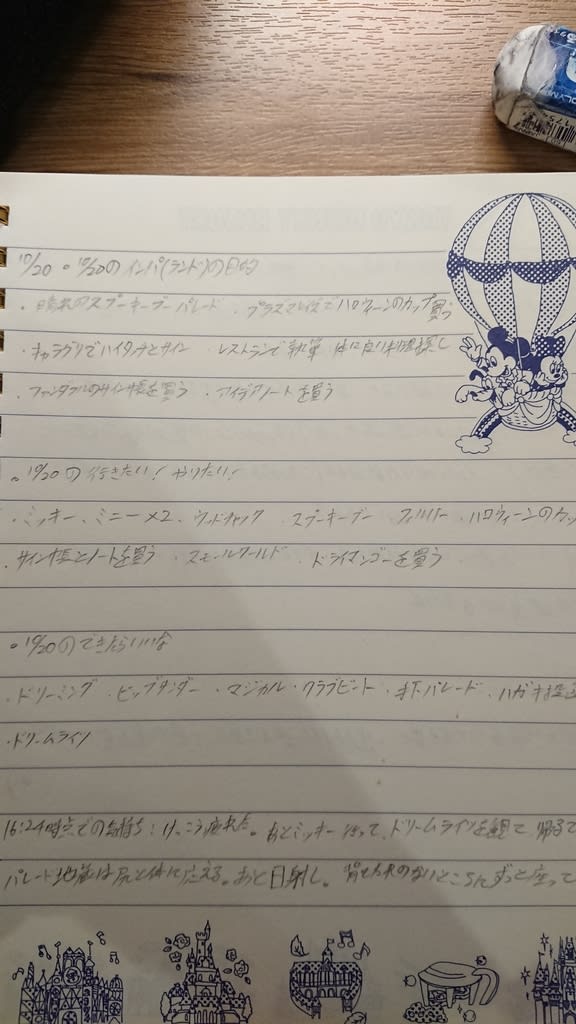 10/20 。10/20のインパ(ランド)の目的
・ のスプーキーブーパレード ・プラズマレイズでハロウィーンのカップ買う
・キャラグリでハイタッチとサイン ・レストランで執筆 体に良い料理探し
・ファンダフルのサイン帳を買う ・アイデアノートを買う
。10/20の行きたい!やりたい!
・ミッキー、ミニー×2、ウッドチャック スプーキーブー フィルハー ・ハロウィーンのカッ
・サイン帳とノートを買う ・スモールワールド ・ドライマンゴーを買う
。10/20のできたらいいな
・ドリーミング ・ビッグサンダー ・マジカル ・クラブビート ・オパレード ・ハガキ
・ドリームライツ
16:24時点での気持ち:けっこう疲れた。あとミッキー行って、ドリームライツを観て、帰るで
パレード地蔵は尻と体に応える。あと日射し。背もたれのないところにずっと座って